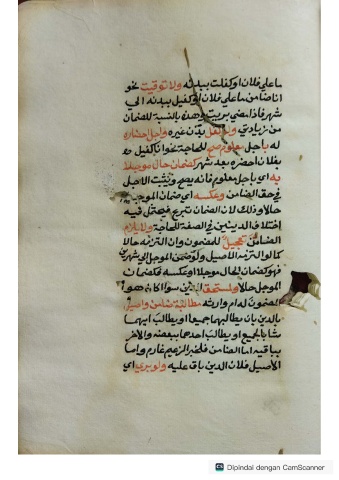 ما على فلان او كفلت ببدنه ولا توقيت نحو
انا ضامن ما على فلان او كفيل ببدنه الى
شهر فاذا مضى بريت وهذه بالنسبة للضمان
من زيادتي ولا بدين غيره واجل احضار
له باجل معلوم للحاجة نحو انا كفيل
بفلان احضره بعد شهر كضمان حال مؤجلا
به اي باجل معلوم فانه يصح ويثبت الاجل
في حق الضامن وعكسه اي ضمان الموجل
حالا وذلك لان الضمان تبرع فيحتمل فيه
اختلاف الدينين في الصفة للحاجة ولا يلزم
الضامن تعجيل للمضمون وان التزمه حالا
كما لو التزمه الاصيل ولو ضمن الموجل الى شهرين
فهو كضمان الحال موجلا او عكسه فكضمان
الموجل حالا ولمستحق سوا كان هو
المضمون له ام وارثه مطالبة ضامن واصيل
بالدين بان يطالبهما جميعا او يطالب ايهما
شا بالجميع او يطالب احدهما ببعضه والاخر
بباقيه اما الضامن فلخبر الزعيم غارم واما
الاصيل فلان الدين باق عليه ولو بري اي
Dipindai dengan CamScanner